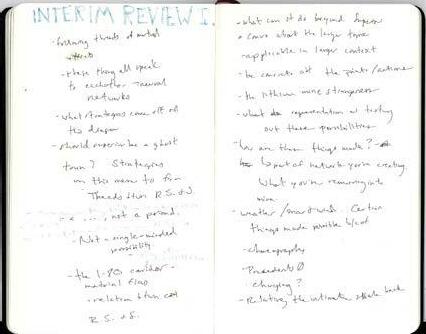 INTERIM REVIEW I.
- following threads of mutual
interests
- these things all speak
to eachother - neural
networks
- what strategies come off of
this
- should superior be a ghost
town? Strategies
on this menu to fix
Threads b/w R.S. & J.
- e ... , not a period.
Not - single-minded
possibility.
- the I-80 corridor -
material flows
- relation b/w
R.S. & J.
- what can it do beyond Superior
- a concern about the larger topic
- applicable in larger context
- be concrete abt the points/actions
- the lithium mine
- what representation
out these possibilities
- how are these things made? -
part of network you're creating
What you're removing into
mine
- weather / Certain
things made possible b/c of
- Choreography
- Precedents
- Changing?
- Relating the intimate back